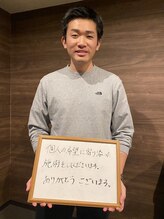 個人の希望に寄り添った
施術をしてくださいます。
ありがとうございます。